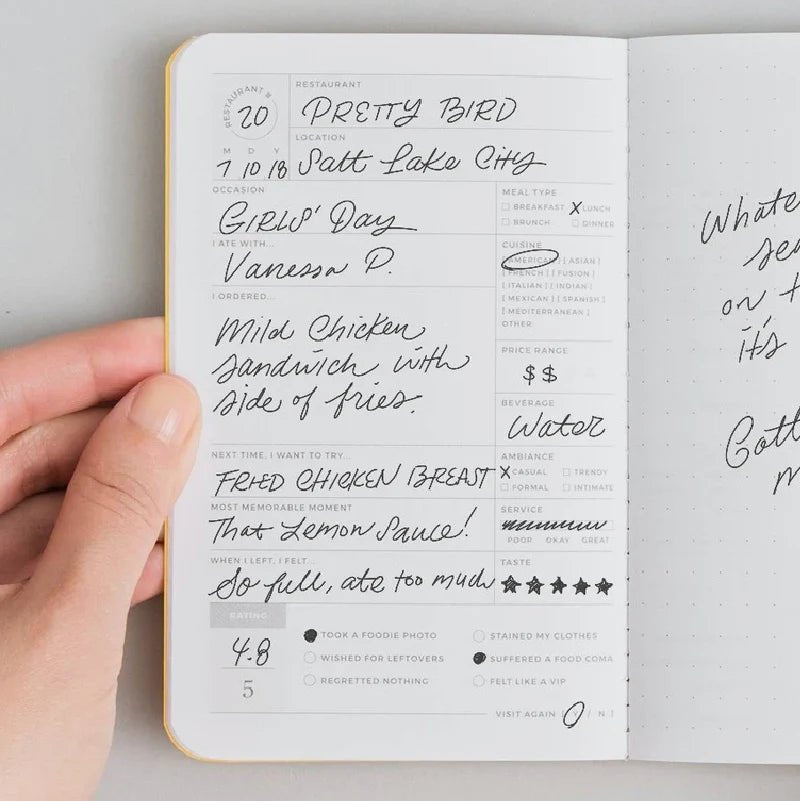 RESTAURANT #
20
RESTAURANT
PRETTY BIRD
LOCATION
Salt Lake City
M D Y
7 10 18
OCCASION
GIRLS' Day
I ATE WITH...
Vanessa P.
I ORDERED...
Mild Chicken
sandwich with
side of fries.
MEAL TYPE
BREAKFAST X LUNCH
BRUNCH DINNER
CUISINE
[ AMERICAN ] [ ASIAN ]
[ FRENCH ] [ FUSION ]
[ ITALIAN ] [ INDIAN ]
[ MEXICAN ] [ SPANISH ]
[ MEDITERRANEAN ]
OTHER
PRICE RANGE
$$
BEVERAGE
Water
NEXT TIME, I WANT TO TRY...
FRIED CHICKEN BREAST
AMBIANCE
X CASUAL TRENDY
FORMAL INTIMATE
MOST MEMORABLE MOMENT
That Lemon Sauce!
SERVICE
POOR OKAY GREAT
WHEN I LEFT, I FELT...
So full, ate too much
TASTE
RATING
4.8
5
TOOK A FOODIE PHOTO
WISHED FOR LEFTOVERS
REGRETTED NOTHING
STAINED MY CLOTHES
SUFFERED A FOOD COMA
FELT LIKE A VIP
VISIT AGAIN [ Y / N ]
on
it's